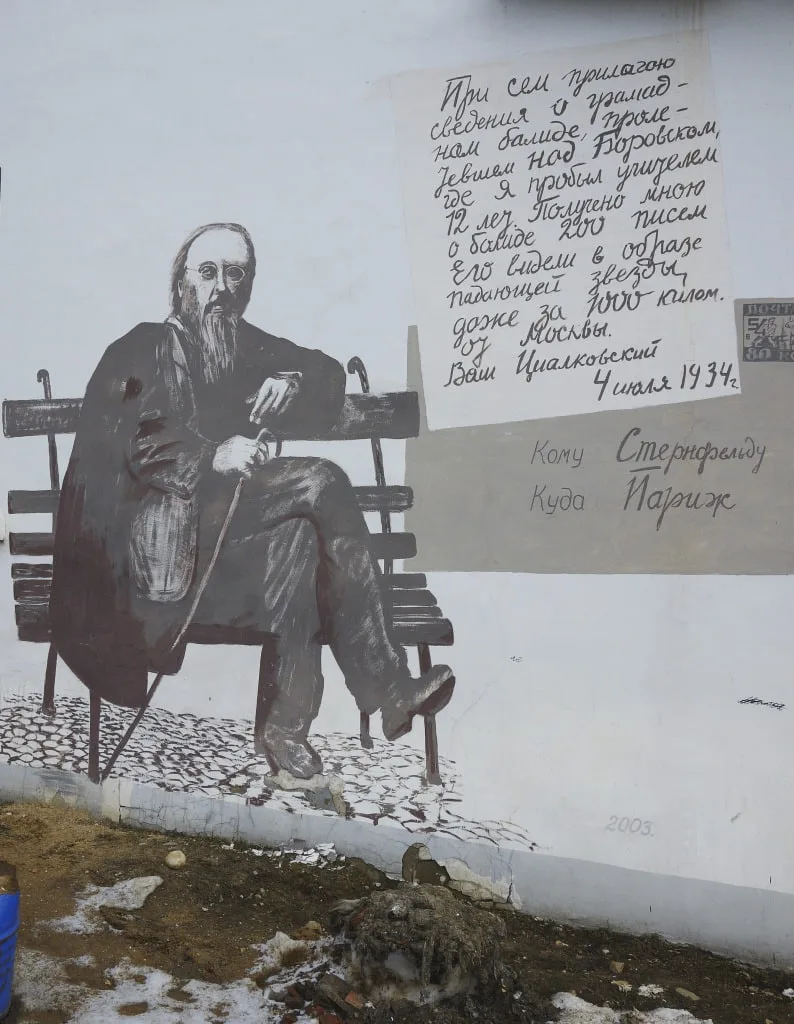 При сем прилагаю
сведения о грамад-
нам балиде, проле-
тевшем над Боровском,
где я пробыл учителем
12 лет. Получено мною
о балиде 200 писем
Его видели в образе
падающей звезды,
даже за 1000 килом.
от Москвы.
Ваш Циалковский
4 июля 1934г.
ПОЧТА
Кому Стернфельду
Куда Париж
2003.